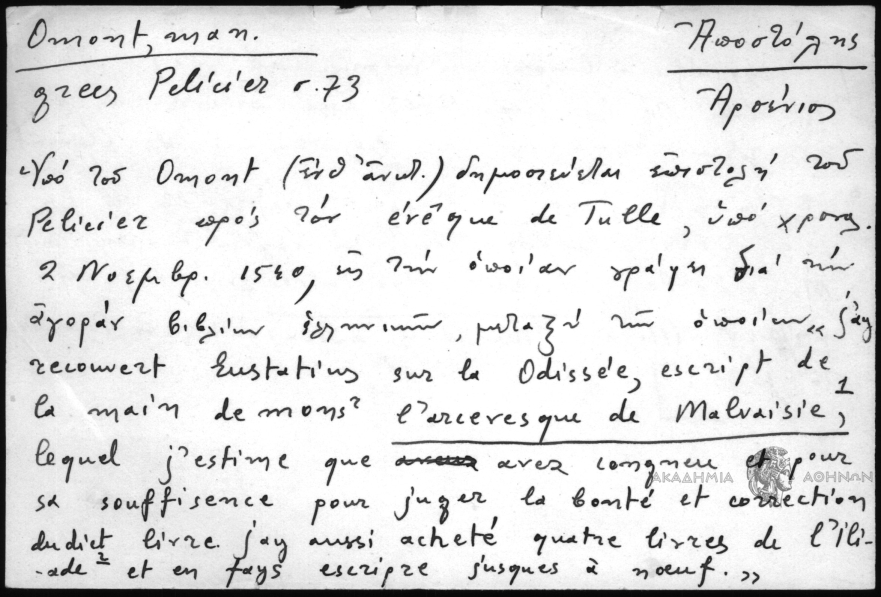 Omont, man. Ἀποστόλης
grecs Pelicier σ. 73 Ἀρσένιος
Ὑπό τοῦ Omont (ἔνθ' ἄνωτ.) δημοσιεύεται ἐπιστολή τοῦ
Pelicier πρός τόν évêque de Tulle, ὑπό χρονολ.
2 Νοεμβρ. 1540, εἰς τήν ὁποίαν γράφει διά τήν
ἀγοράν βιβλίων ἑλληνικῶν, μεταξύ τῶν ὁποίων „ j'ay
recouvert Eustatius sur la Odissée, escript de
la main de monsr l'arcevesque de Malvaisie,1
lequel j'estime que avez congneu et pour
ΑΚΑΔΗΜΙΑ ΑΘΗΝΩΝ
sa souffisence pour juger la bonté et correction
dudict livre. j'ay aussi acheté quatre livres de l'Ili-
-ade2 et en fays escripre jusques à noeuf. „